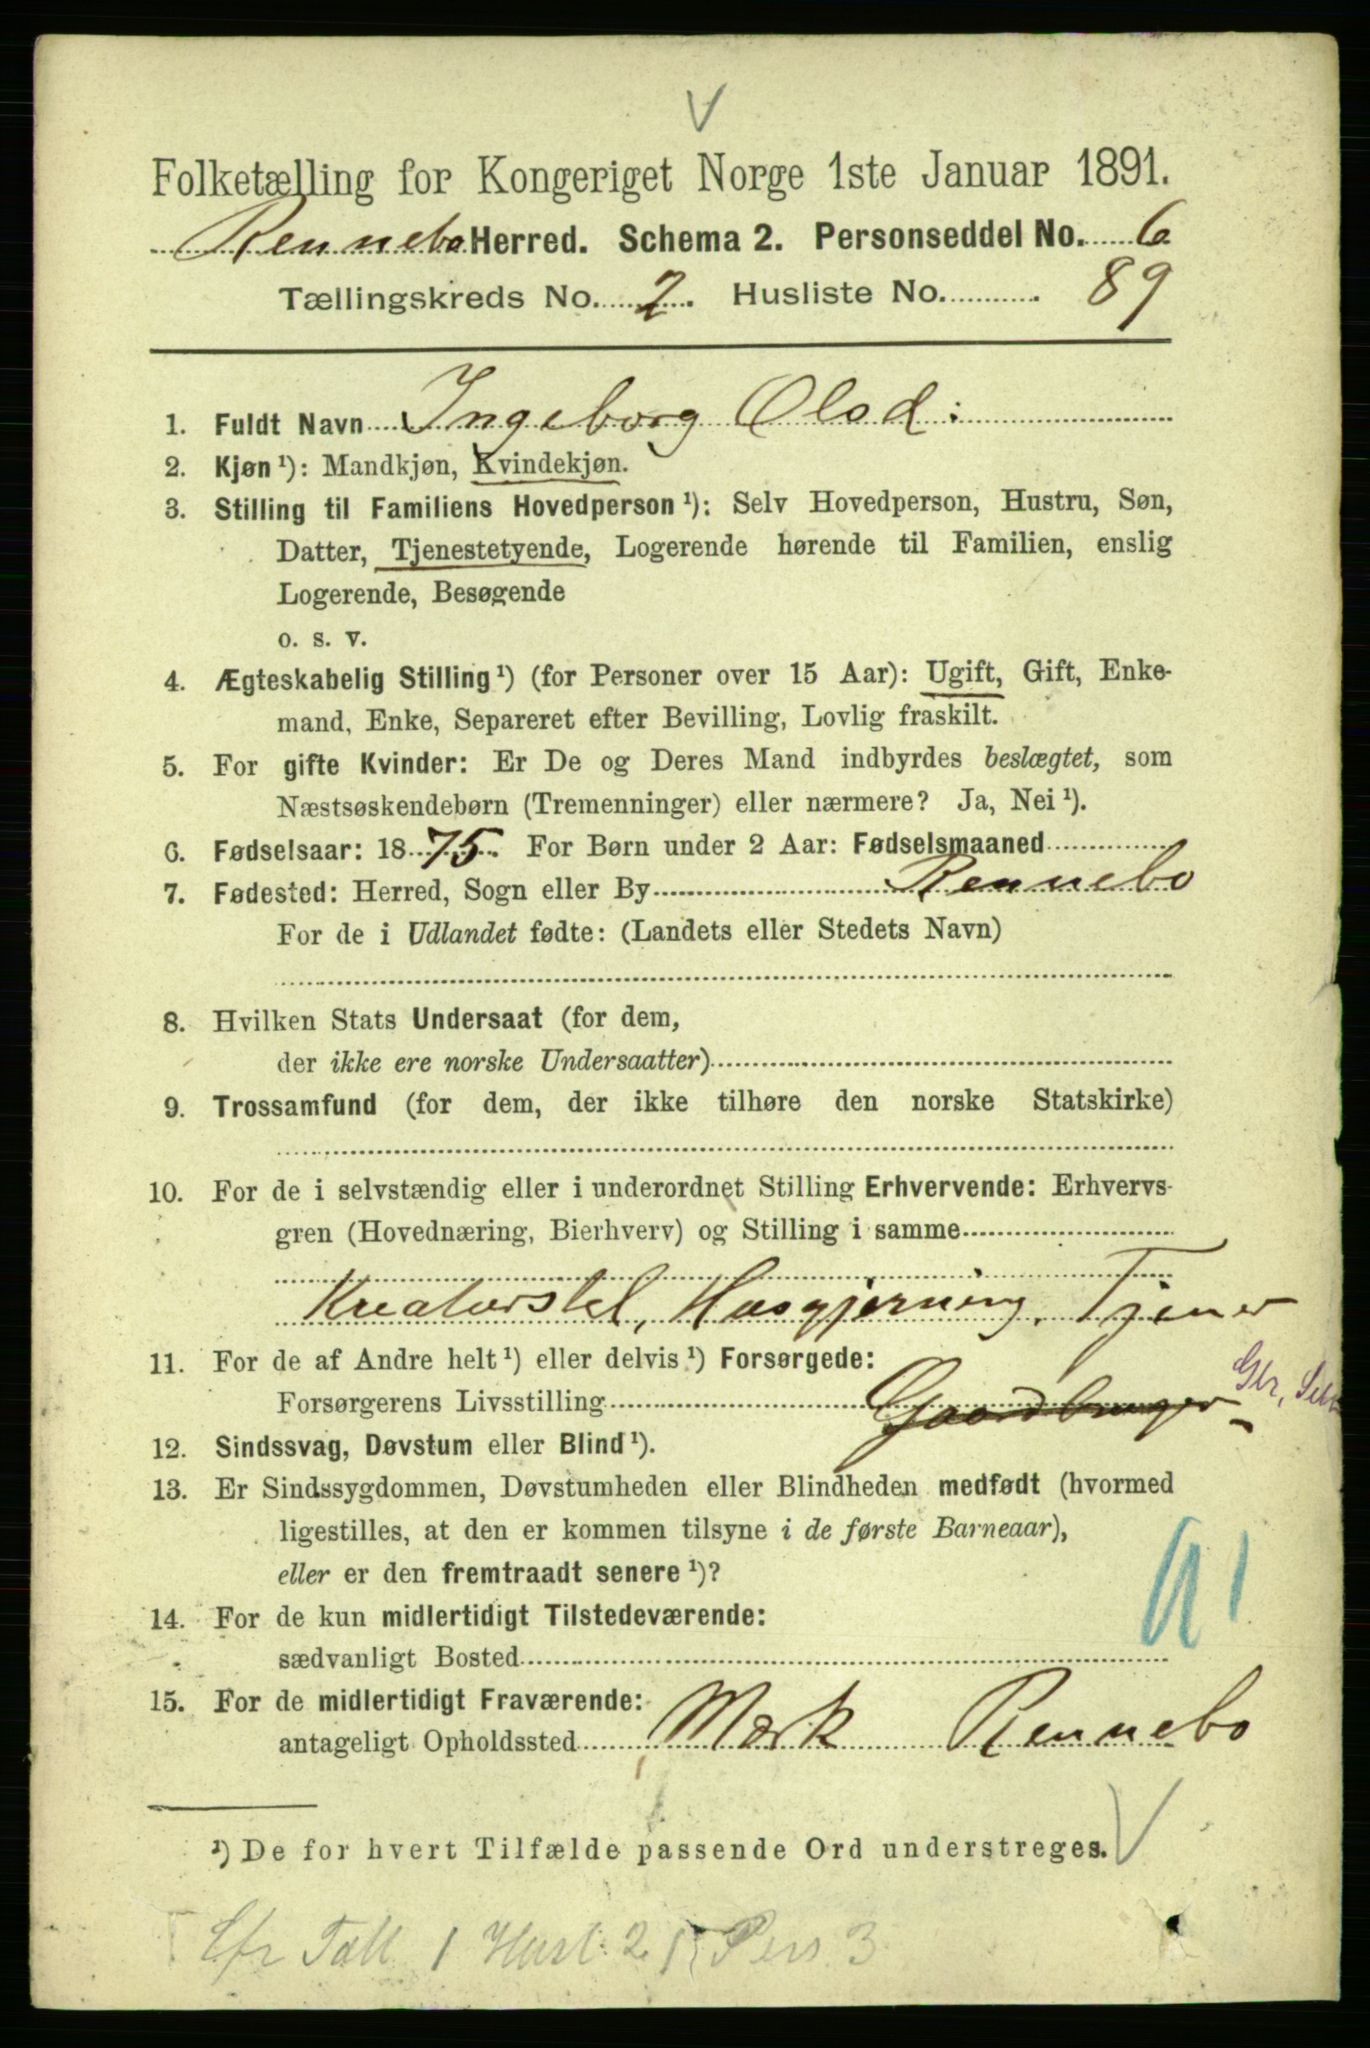 V
Folketælling for Kongeriget Norge 1ste Januar 1891.
Rennebo Herred. Schema 2. Personseddel No. 6
Tællingskreds No. 2. Husliste No. 89
1. Fuldt Navn Ingeborg Olsd:
2. Kjøn ¹): Mandkjøn, Kvindekjøn.
3. Stilling til Familiens Hovedperson ¹): Selv Hovedperson, Hustru, Søn,
Datter, Tjenestetyende, Logerende hørende til Familien, enslig
Logerende, Besøgende
o. s. v.
4. Ægteskabelig Stilling ¹) (for Personer over 15 Aar): Ugift, Gift, Enke-
mand, Enke, Separeret efter Bevilling, Lovlig fraskilt.
5. For gifte Kvinder: Er De og Deres Mand indbyrdes beslægtet, som
Næstsøskendebørn (Tremenninger) eller nærmere? Ja, Nei ¹).
6. Fødselsaar: 1875. For Børn under 2 Aar: Fødselsmaaned
7. Fødested: Herred, Sogn eller By Rennebo
For de i Udlandet fødte: (Landets eller Stedets Navn)
8. Hvilken Stats Undersaat (for dem,
der ikke ere norske Undersaatter)
9. Trossamfund (for dem, der ikke tilhøre den norske Statskirke)
10. For de i selvstændig eller i underordnet Stilling Erhvervende: Erhvervs-
gren (Hovednæring, Bierhverv) og Stilling i samme
Kreaturstel, Husgjerning. Tjener
11. For de af Andre helt ¹) eller delvis ¹) Forsørgede:
Forsørgerens Livsstilling Gaardbruger Gbr, Selv
12. Sindssvag, Døvstum eller Blind ¹).
13. Er Sindssygdommen, Døvstumheden eller Blindheden medfødt (hvormed
ligestilles, at den er kommen tilsyne i de første Barneaar),
eller er den fremtraadt senere ¹)?
14. For de kun midlertidigt Tilstedeværende:
sædvanligt Bosted
15. For de midlertidigt Fraværende:
antageligt Opholdssted Mærk Rennebo
¹) De for hvert Tilfælde passende Ord understreges. V
Cfr Tæll 1 Husl. 21 Pers 3